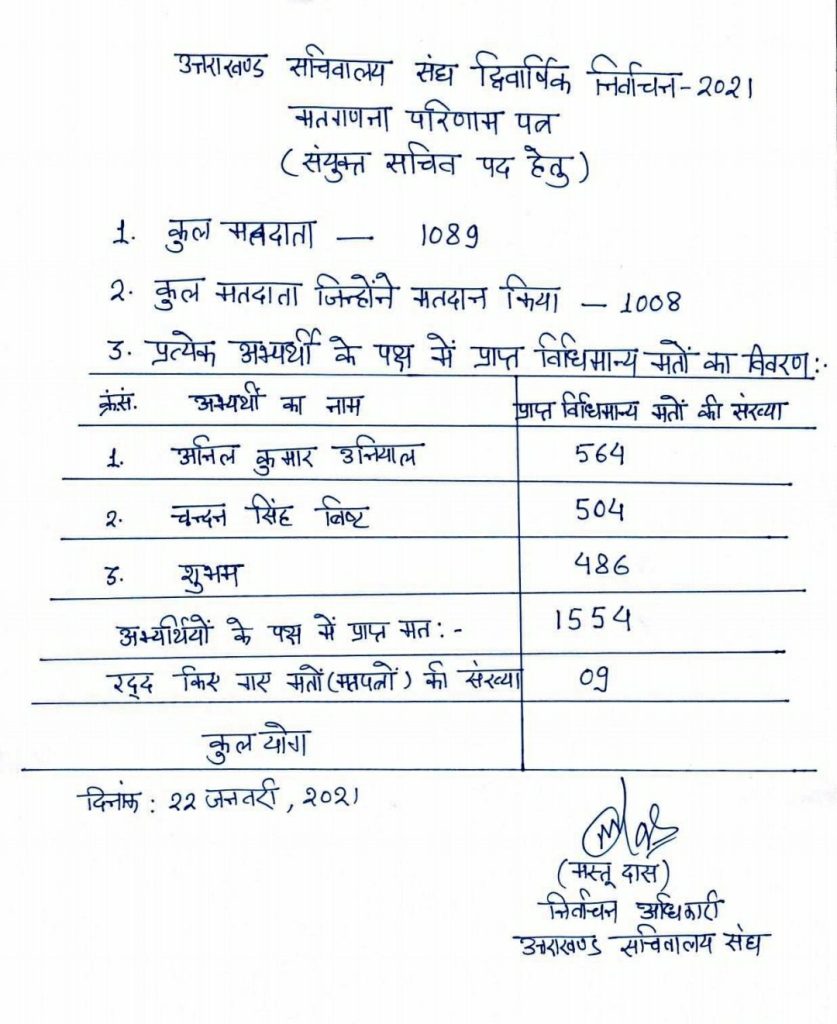 उत्तराखण्ड सचिवालय संघ द्विवार्षिक निर्वाचन-2021
मतगणना परिणाम पत्र
(संयुक्त सचिव पद हेतु)
1. कुल मतदाता — 1089
2. कुल मतदाता जिन्होंने मतदान किया — 1008
3. प्रत्येक अभ्यर्थी के पक्ष में प्राप्त विधिमान्य मतों का विवरण:-
क्र.सं. अभ्यर्थी का नाम प्राप्त विधिमान्य मतों की संख्या
1. अनिल कुमार उनियाल 564
2. चन्दन सिंह बिष्ट 504
3. शुभम 486
अभ्यर्थियों के पक्ष में प्राप्त मत:- 1554
रद्द किए गए मतों (मतपत्रों) की संख्या 09
कुल योग
दिनांक : 22 जनवरी, 2021
(मस्तू दास)
निर्वाचन अधिकारी
उत्तराखण्ड सचिवालय संघ